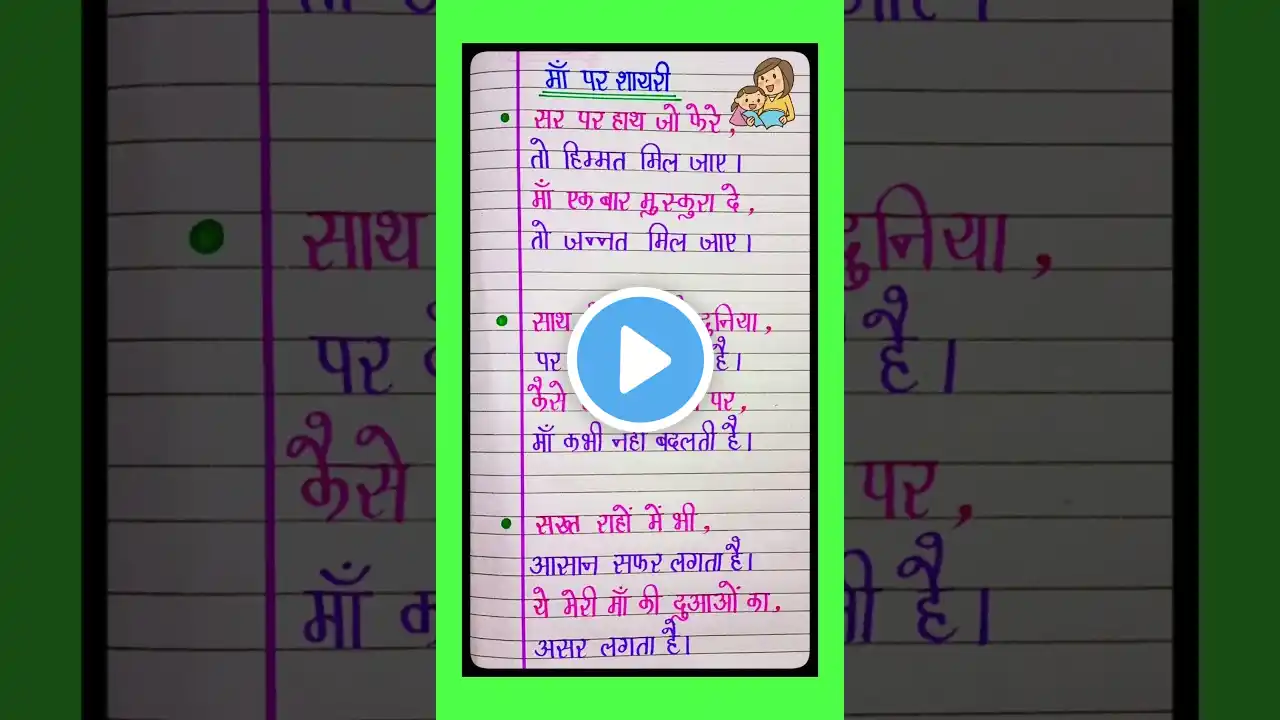 माँ पर शायरी
सर पर हाथ जो फेरे,
तो हिम्मत मिल जाए।
माँ एक बार मुस्कुरा दे,
तो जन्नत मिल जाए।
साथ दुनिया,
पर है।
कैसे पर,
माँ कभी नहीं बदलती है।
सख्त राहों में भी,
आसान सफर लगता है।
ये मेरी माँ की दुआओं का,
असर लगता है।